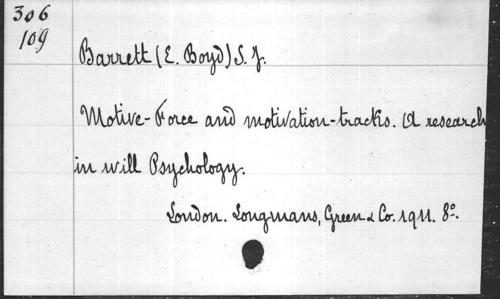 306
109
Barrett (E. Boyd) S. J.
Motive-Force and motivation-tracks. (A research
in will Psychology.
London. Longmans, Green & Co. 1911. 8º.